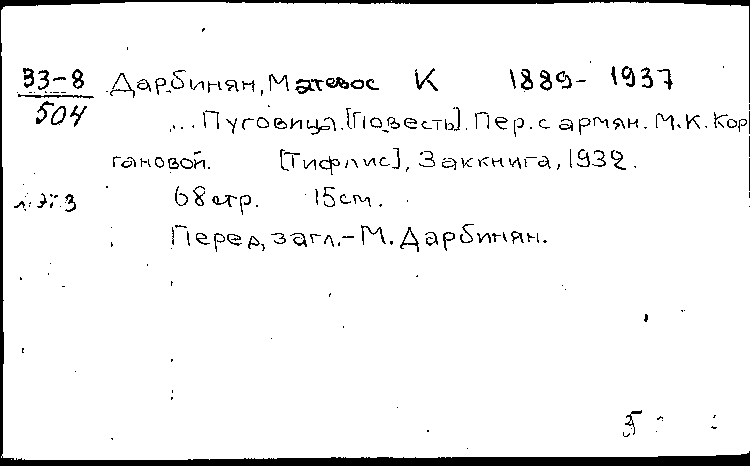 33-8 Дарбинян, Матевос К 1889- 1937
504 ... Пуговица. [Повесть]. Пер. с армян. М.К. Кор
гановой. [Тифлис], Заккнига, 1932.
68 стр. 15 см.
Перед загл.- М. Дарбинян.